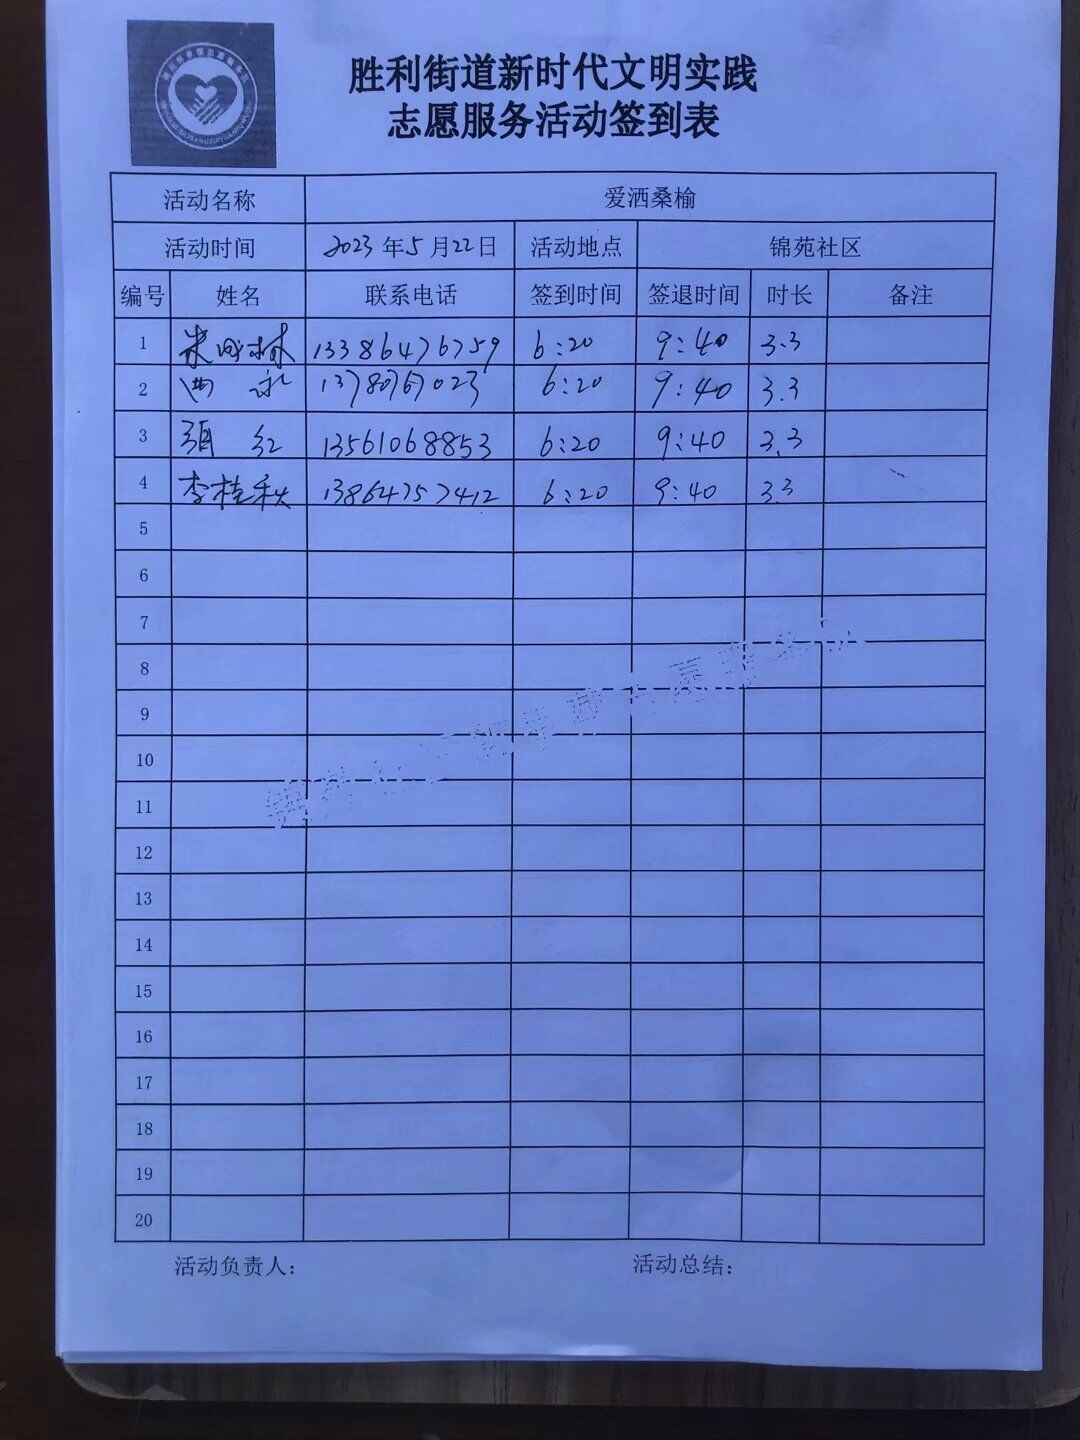 胜利街道新时代文明实践
志愿服务活动签到表
活动名称 爱洒桑榆
活动时间 2023年5月22日 活动地点 锦苑社区
编号 姓名 联系电话 签到时间 签退时间 时长 备注
1 13386476759 6:20 9:40 3.3
2 6:20 9:40 3.3
3 红 13561068853 6:20 9:40 3.3
4 李桂秋 13864757412 6:20 9:40 3.3
5
6
7
8
9
10
11
12
13
14
15
16
17
18
19
20
活动负责人: 活动总结: